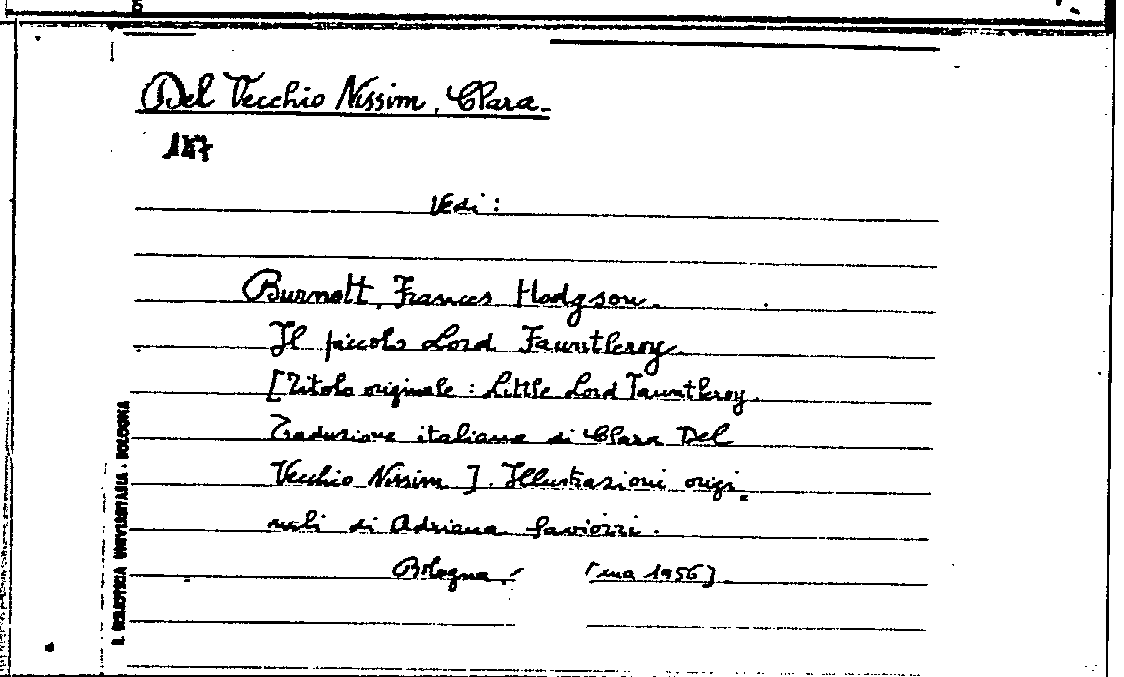 Del Vecchio Nissim, Clara.
147
Vedi:
Burnett, Frances Hodgson.
Il piccolo Lord Fauntleroy.
[Titolo originale: Little Lord Fauntleroy.
Traduzione italiana di Clara Del
Vecchio Nissim]. Illustrazioni origi
nali di Adriana Saviozzi.
Bologna, 1956].
R. BIBLIOTECA UNIVERSITARIA - BOLOGNA